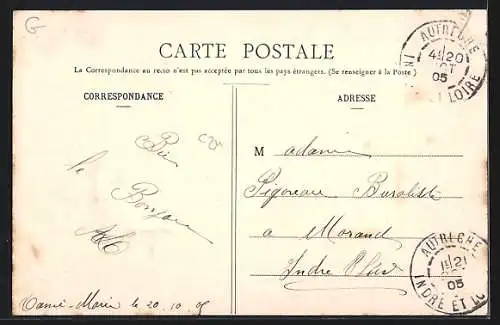 G
CARTE POSTALE
La Correspondance au recto n'est pas acceptée par tous les pays étrangers. (Se renseigner à la Poste)
CORRESPONDANCE
Bien
le
Bonjour
le 20. 10. 05
ADRESSE
M adame
Pigoreau Buraliste
a Morand
Indre & Loire
AUTRÈCHE
4 20
OCT
05
INDRE ET LOIRE
AUTRÈCHE
21
05
INDRE ET LOIRE